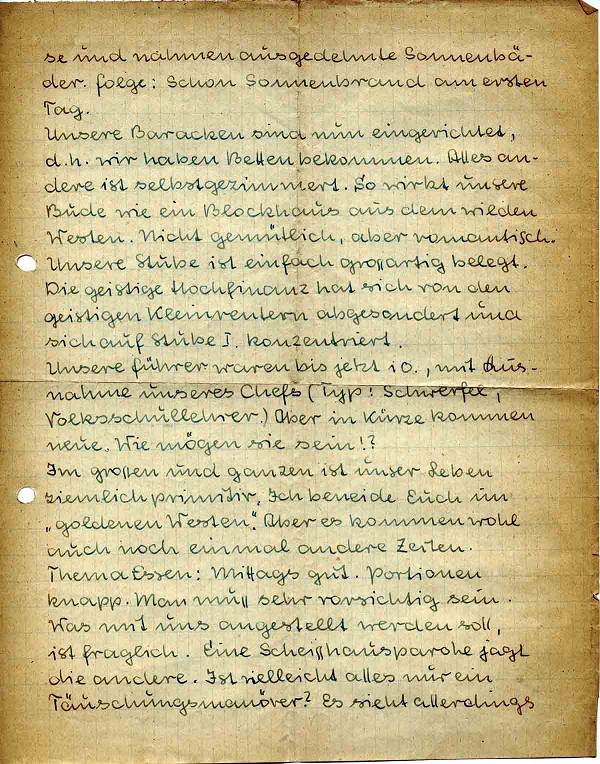 se und nahmen ausgedehnte Sonnenbä-
der. Folge: Schon Sonnenbrand am ersten
Tag.
Unsere Baracken sind nun eingerichtet,
d.h. wir haben Betten bekommen. Alles an-
dere ist selbstgezimmert. So wirkt unsere
Bude wie ein Blockhaus aus dem wilden
Westen. Nicht gemütlich, aber romantisch.
Unsere Stube ist einfach großartig belegt.
Die geistige Hochfinanz hat sich von den
geistigen Kleinrentern abgesondert und
sich auf Stube I. konzentriert.
Unsere Führer waren bis jetzt i.O., mit Aus-
nahme unseres Chefs (Typ: Schwerfel,
Volksschullehrer.) Aber in Kürze kommen
neue. Wie mögen sie sein!?
Im großen und ganzen ist unser Leben
ziemlich primitiv. Ich beneide Euch im
„goldenen Westen". Aber es kommen wohl
auch noch einmal andere Zeiten.
Thema Essen: Mittags gut. Portionen
knapp. Man muß sehr vorsichtig sein.
Was mit uns angestellt werden soll,
ist fraglich. Eine Scheißhausparole jagt
die andere. Ist vielleicht alles nur ein
Täuschungsmanöver? Es sieht allerdings